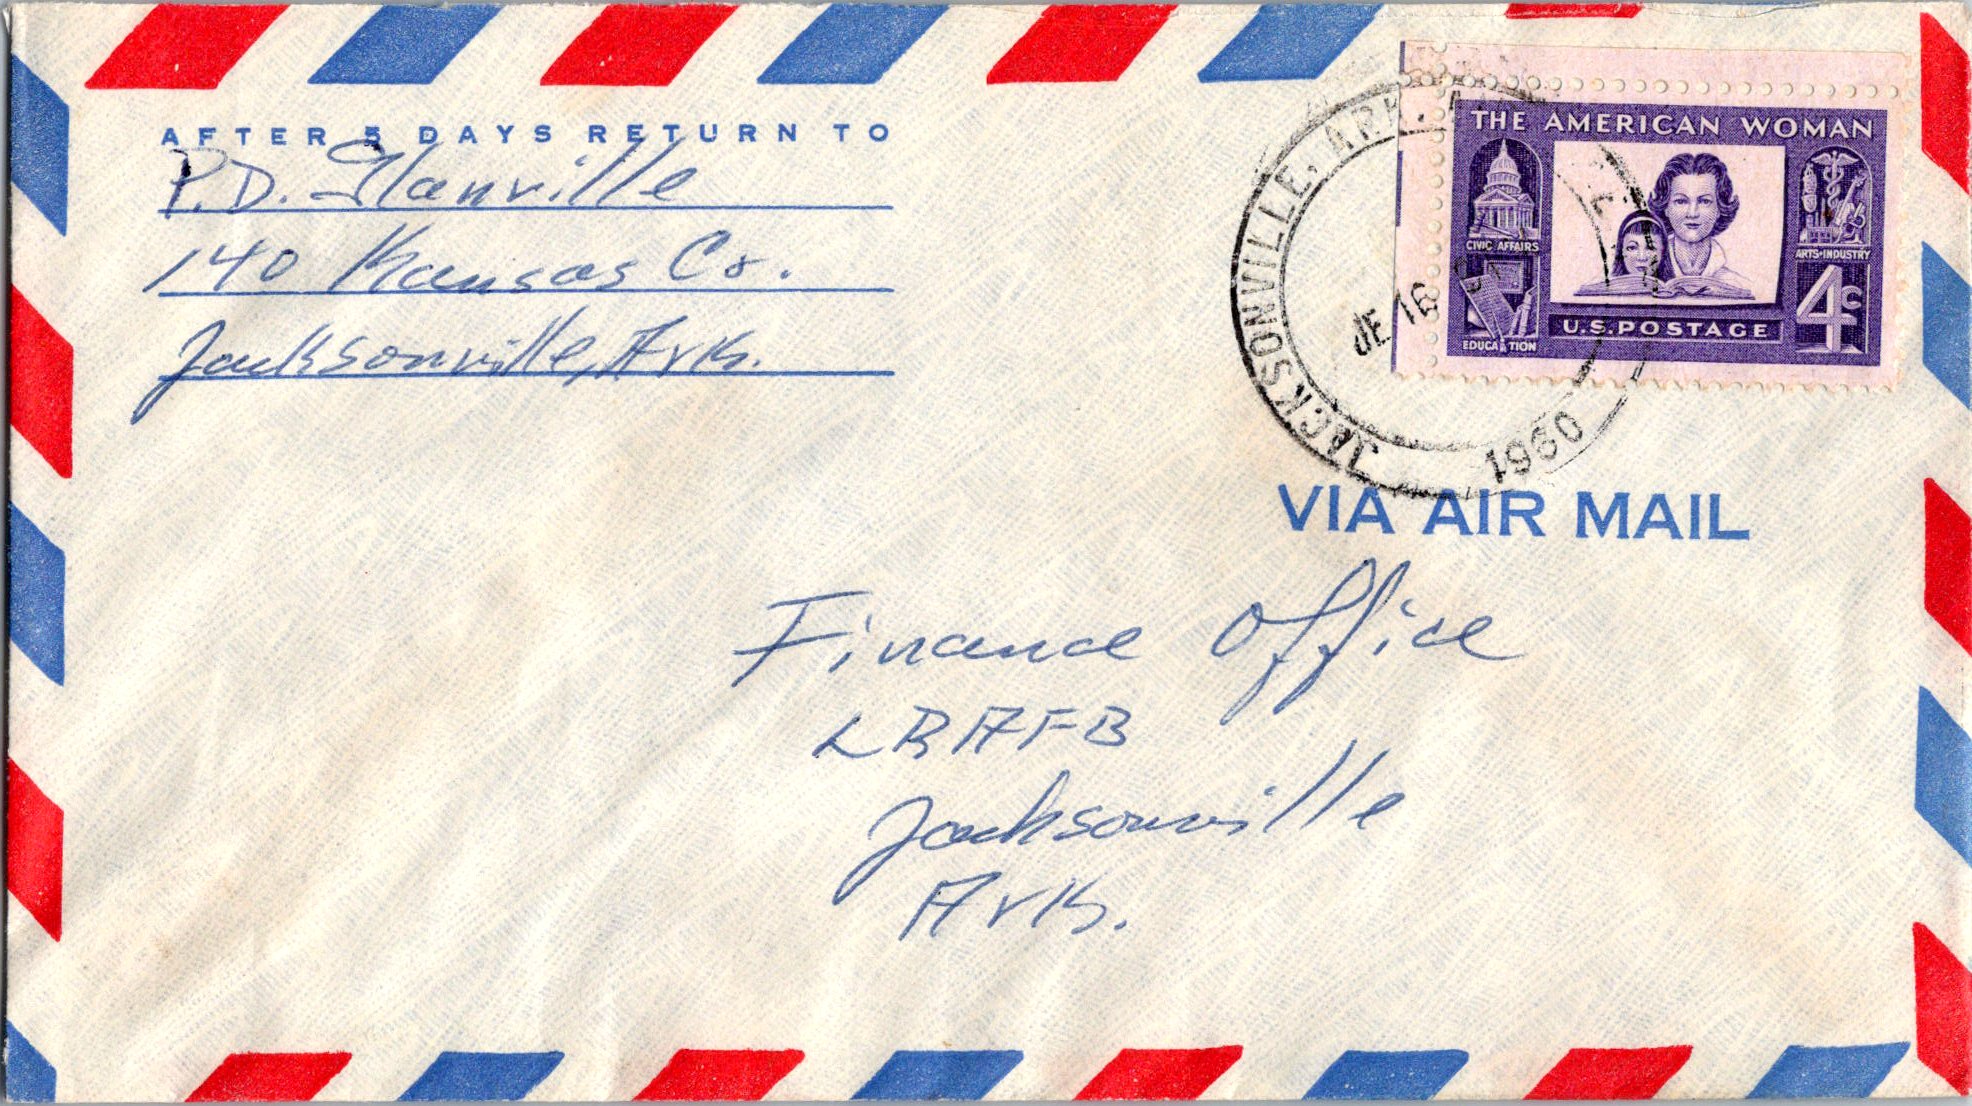 AFTER 5 DAYS RETURN TO
P.D. Glanville
140 Kansas Co.
Jacksonville, Ark.
THE AMERICAN WOMAN
CIVIC AFFAIRS
ARTS·INDUSTRY
EDUCATION
U.S.POSTAGE
4c
JACKSONVILLE, ARK.
JE 16
1960
VIA AIR MAIL
Finance Office
LRAFB
Jacksonville
Ark.